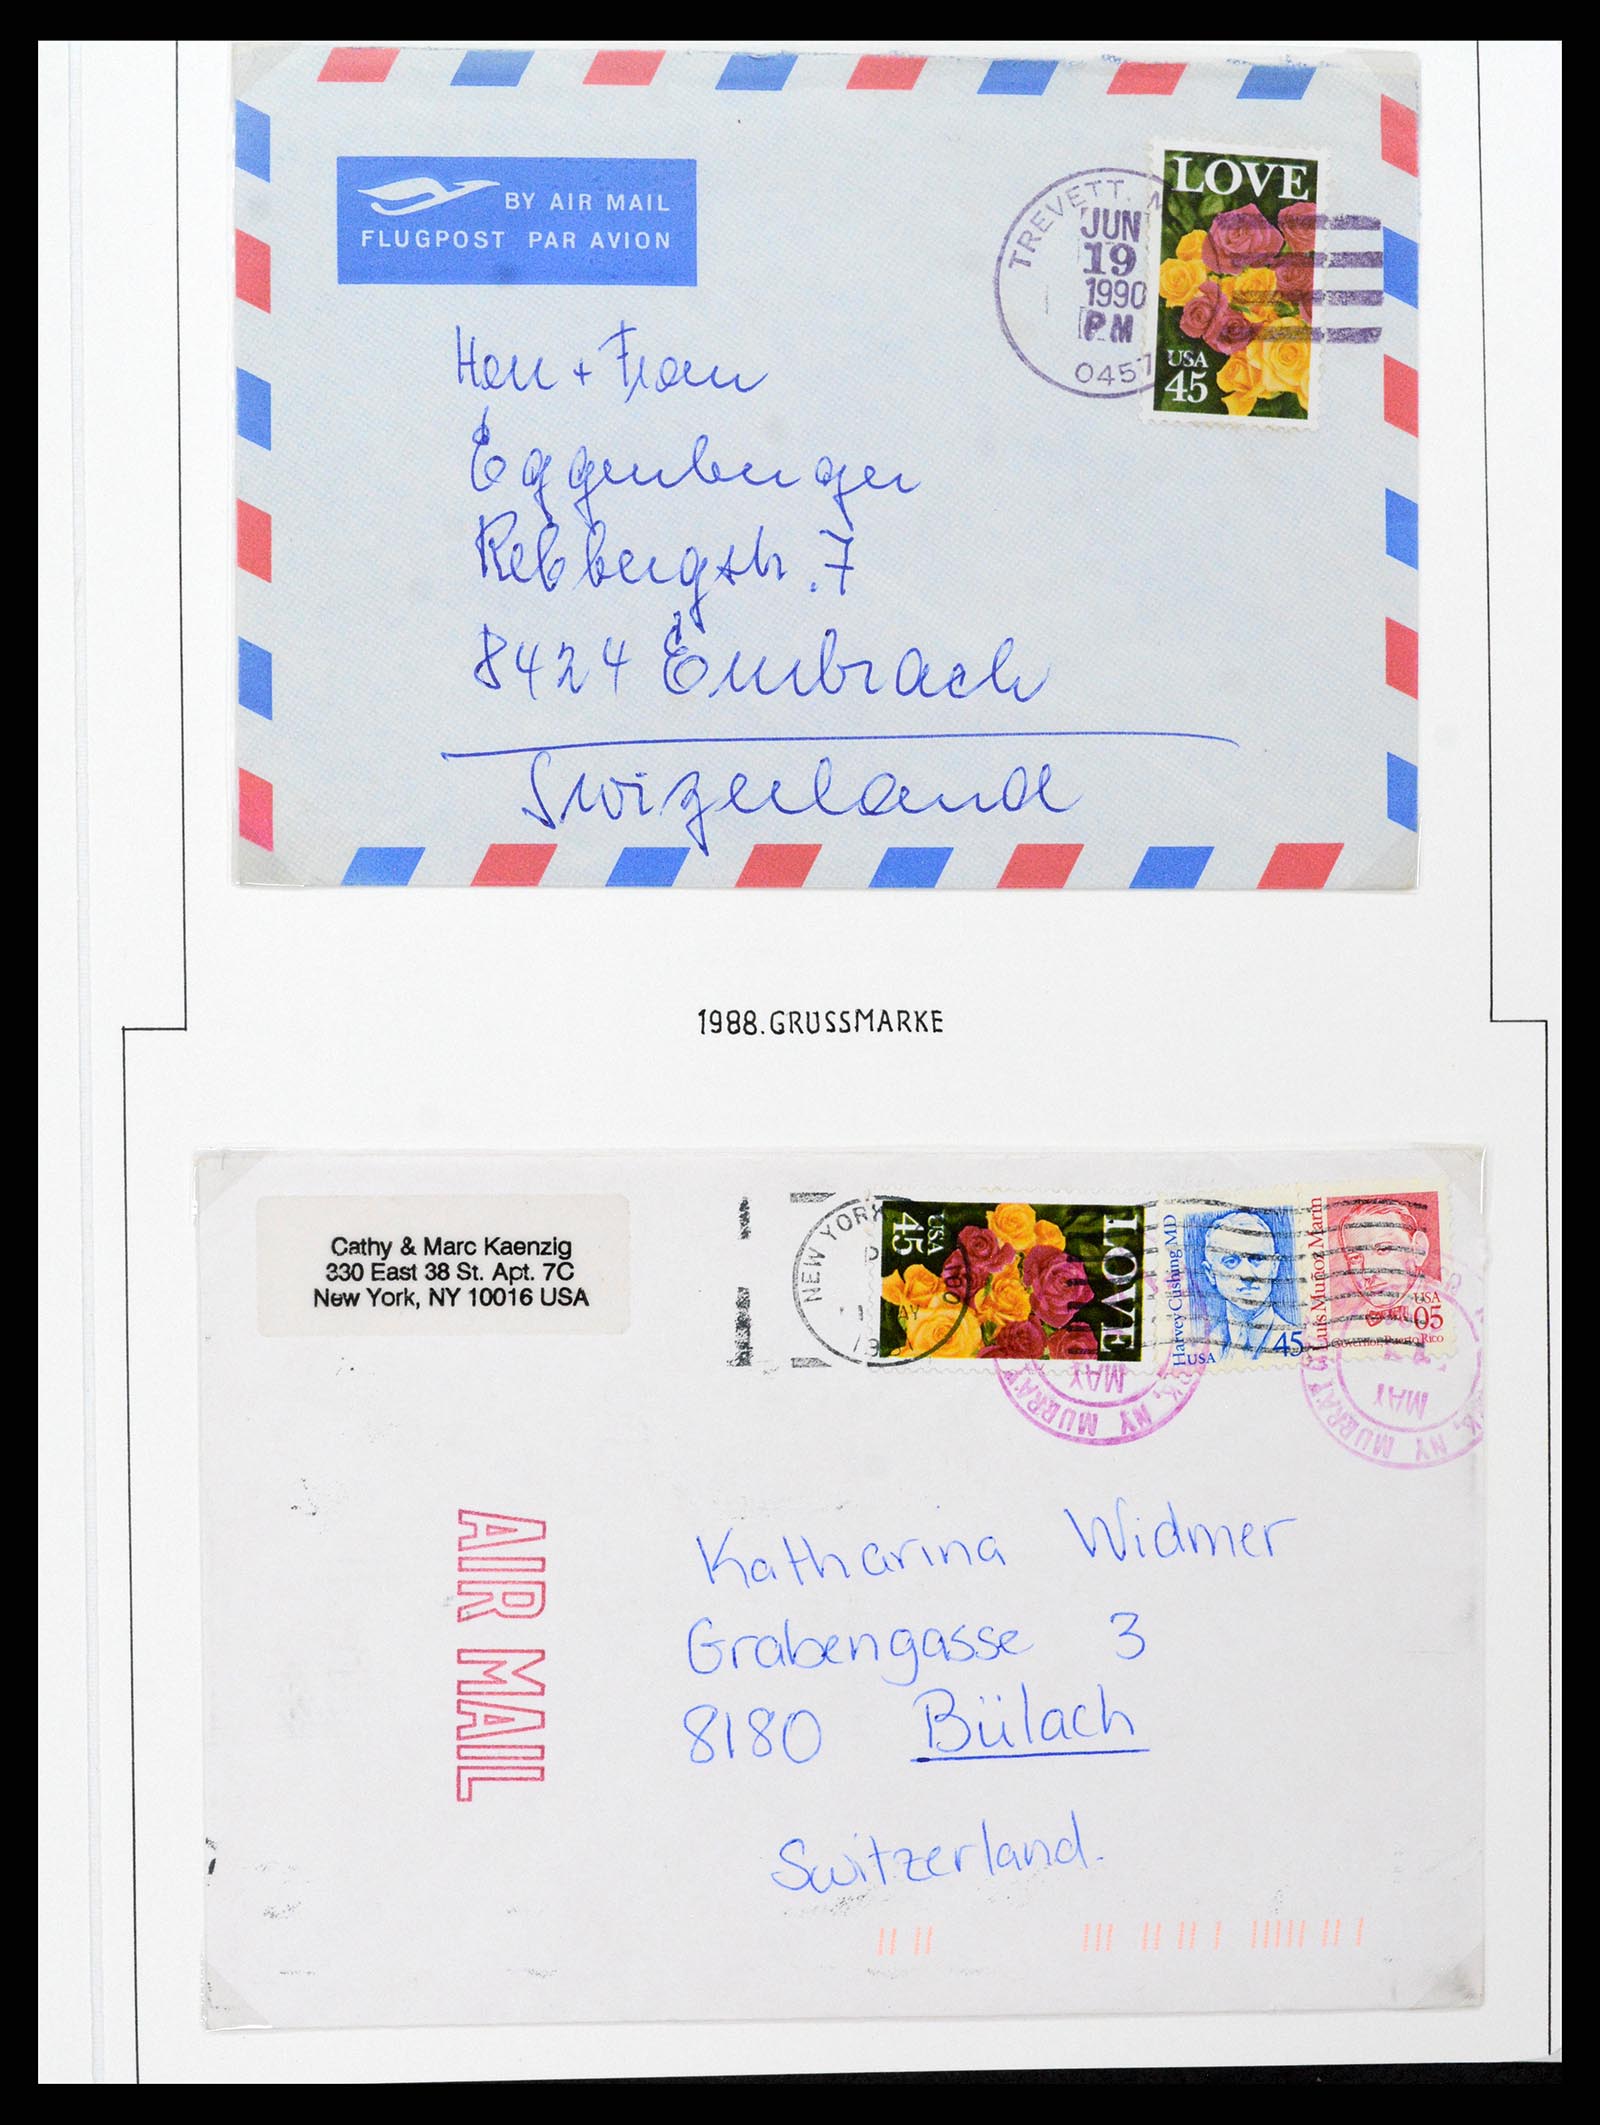 BY AIR MAIL
FLUGPOST PAR AVION
TREVETT, M
JUN
19
1990
PM
0457
LOVE
USA
45
Herr + Frau
Eggenberger
Rebbergstr. 7
8424 Embrach
Swizerland
1988.GRUSSMARKE
Cathy & Marc Kaenzig
330 East 38 St. Apt. 7C
New York, NY 10016 USA
NEW YORK
LOVE
USA
45
Harvey Cushing MD
USA
45
Luis Muñoz Marín
USA
05
Governor, Puerto Rico
NY MURRAY
MAY
NY MURRAY
MAY
AIR MAIL
Katharina Widmer
Grabengasse 3
8180 Bülach
Switzerland.